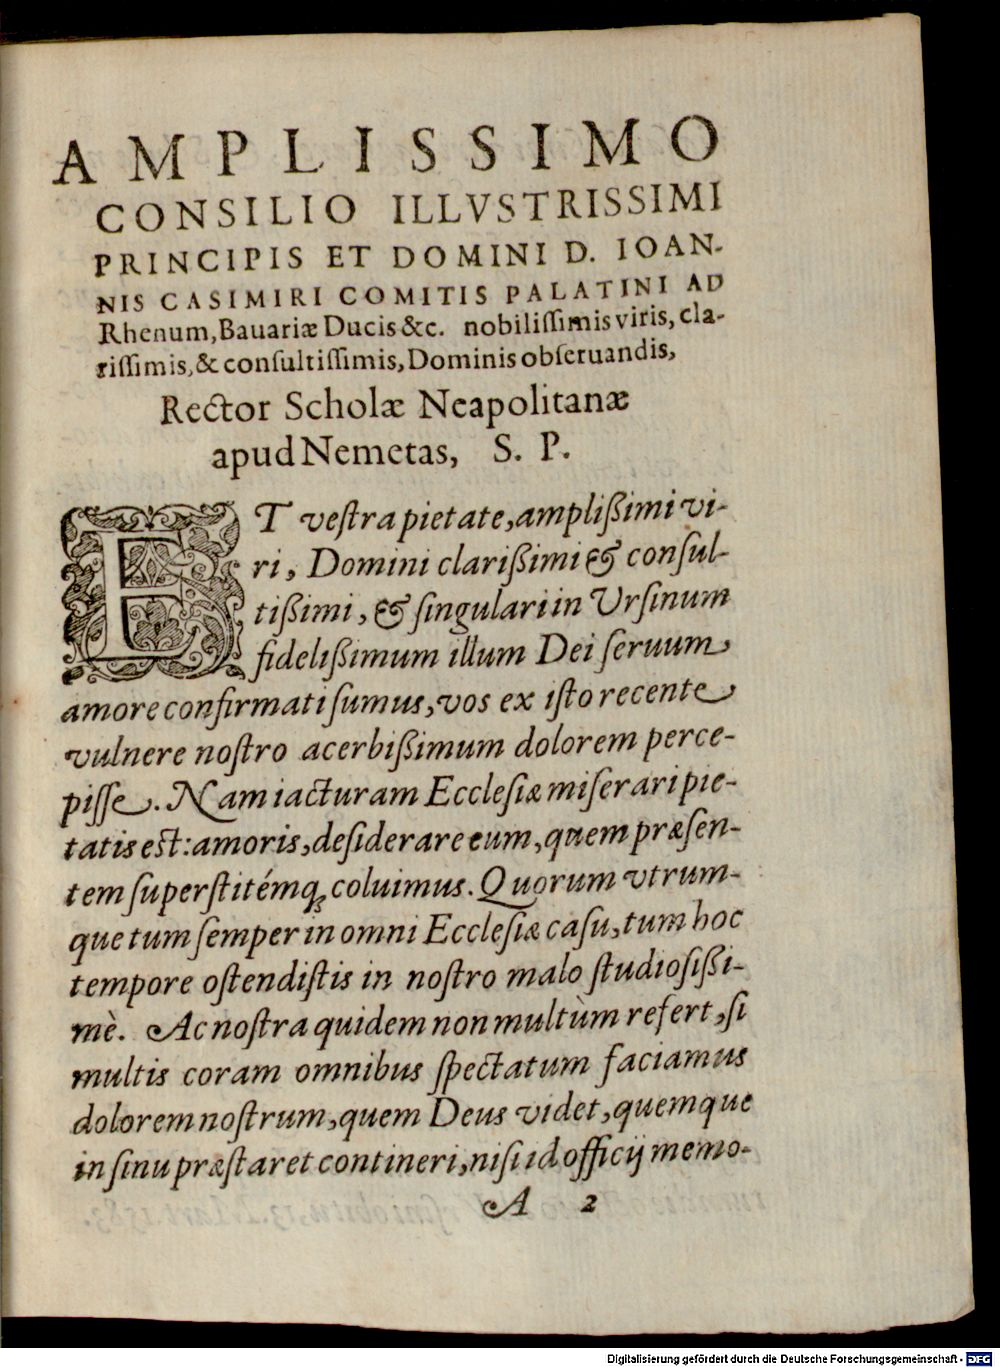 AMPLISSIMO
CONSILIO ILLVSTRISSIMI
PRINCIPIS ET DOMINI D. IOAN-
NIS CASIMIRI COMITIS PALATINI AD
Rhenum, Bauariæ Ducis &c. nobiliſſimis viris, cla-
riſſimis, & conſultiſſimis, Dominis obſeruandis,
Rector Scholæ Neapolitanæ
apud Nemetas, S. P.
ET veſtra pietate, amplißimi vi-
ri, Domini clarißimi & conſul-
tißimi, & ſingulari in Vrſinum
fidelißimum illum Dei ſeruum
amore confirmati ſumus, vos ex iſto recente
vulnere noſtro acerbißimum dolorem perce-
piſſe. Nam iacturam Eccleſiæ miſerari pie-
tatis est: amoris, deſiderare eum, quem præſen-
tem ſuperſtitémq; coluimus. Quorum vtrum-
que tum ſemper in omni Eccleſiæ caſu, tum hoc
tempore oſtendiſtis in noſtro malo ſtudioſißi-
mè. Ac noſtra quidem non multùm refert, ſi
multis coram omnibus ſpectatum faciamus
dolorem noſtrum, quem Deus videt, quemque
in ſinu præſtaret contineri, niſi id officij memo-
A 2
Digitalisierung gefördert durch die Deutsche Forschungsgemeinschaft - DFG